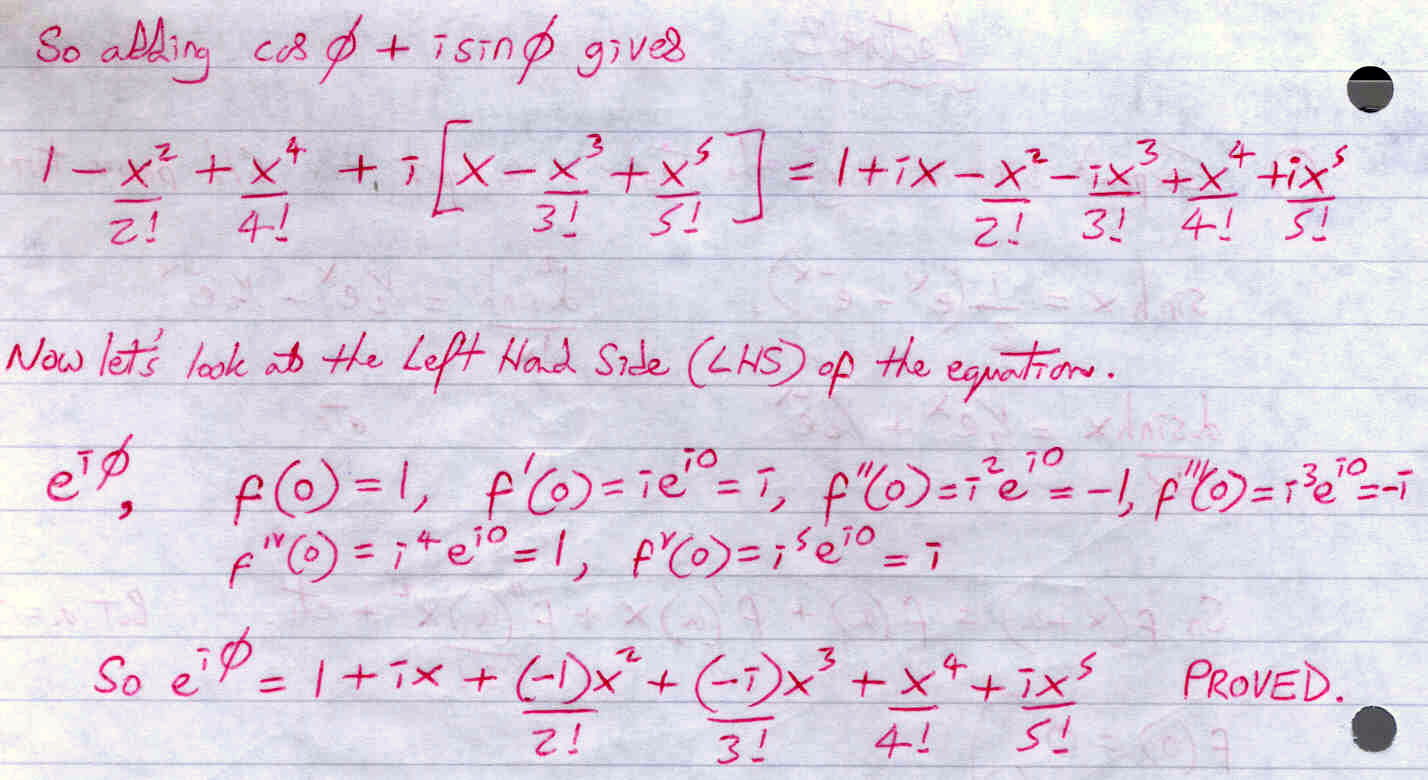 So adding cos φ + i sin φ gives
1 - x²/2! + x⁴/4! + i[x - x³/3! + x⁵/5!] = 1 + ix - x²/2! - ix³/3! + x⁴/4! + ix⁵/5!
Now let's look at the Left Hand Side (LHS) of the equation.
e^{iφ}, f(0) = 1, f'(0) = ie^{i0} = i, f''(0) = i²e^{i0} = -1, f'''(0) = i³e^{i0} = -i
f^{IV}(0) = i⁴e^{i0} = 1, f^{V}(0) = i⁵e^{i0} = i
So e^{iφ} = 1 + ix + (-1)x²/2! + (-i)x³/3! + x⁴/4! + ix⁵/5! PROVED.